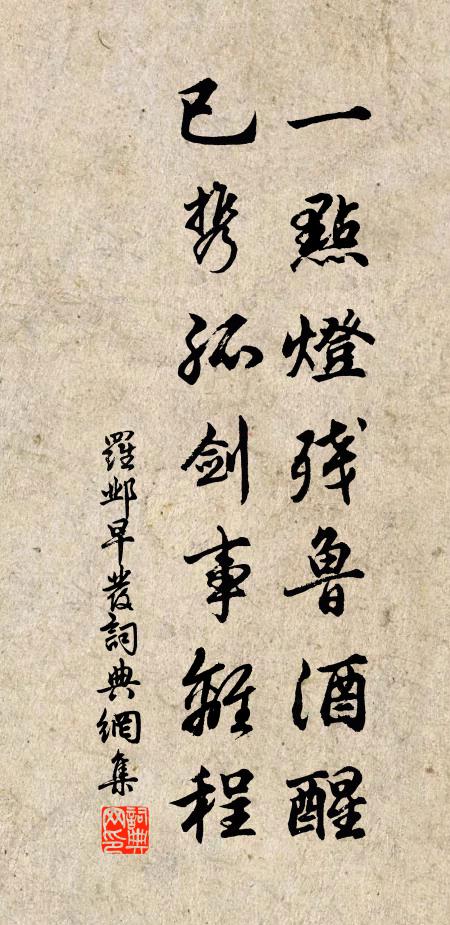 一點燈殘魯酒醒
已携孤劍事離程
羅鄴早發詞典網集
詞典網印